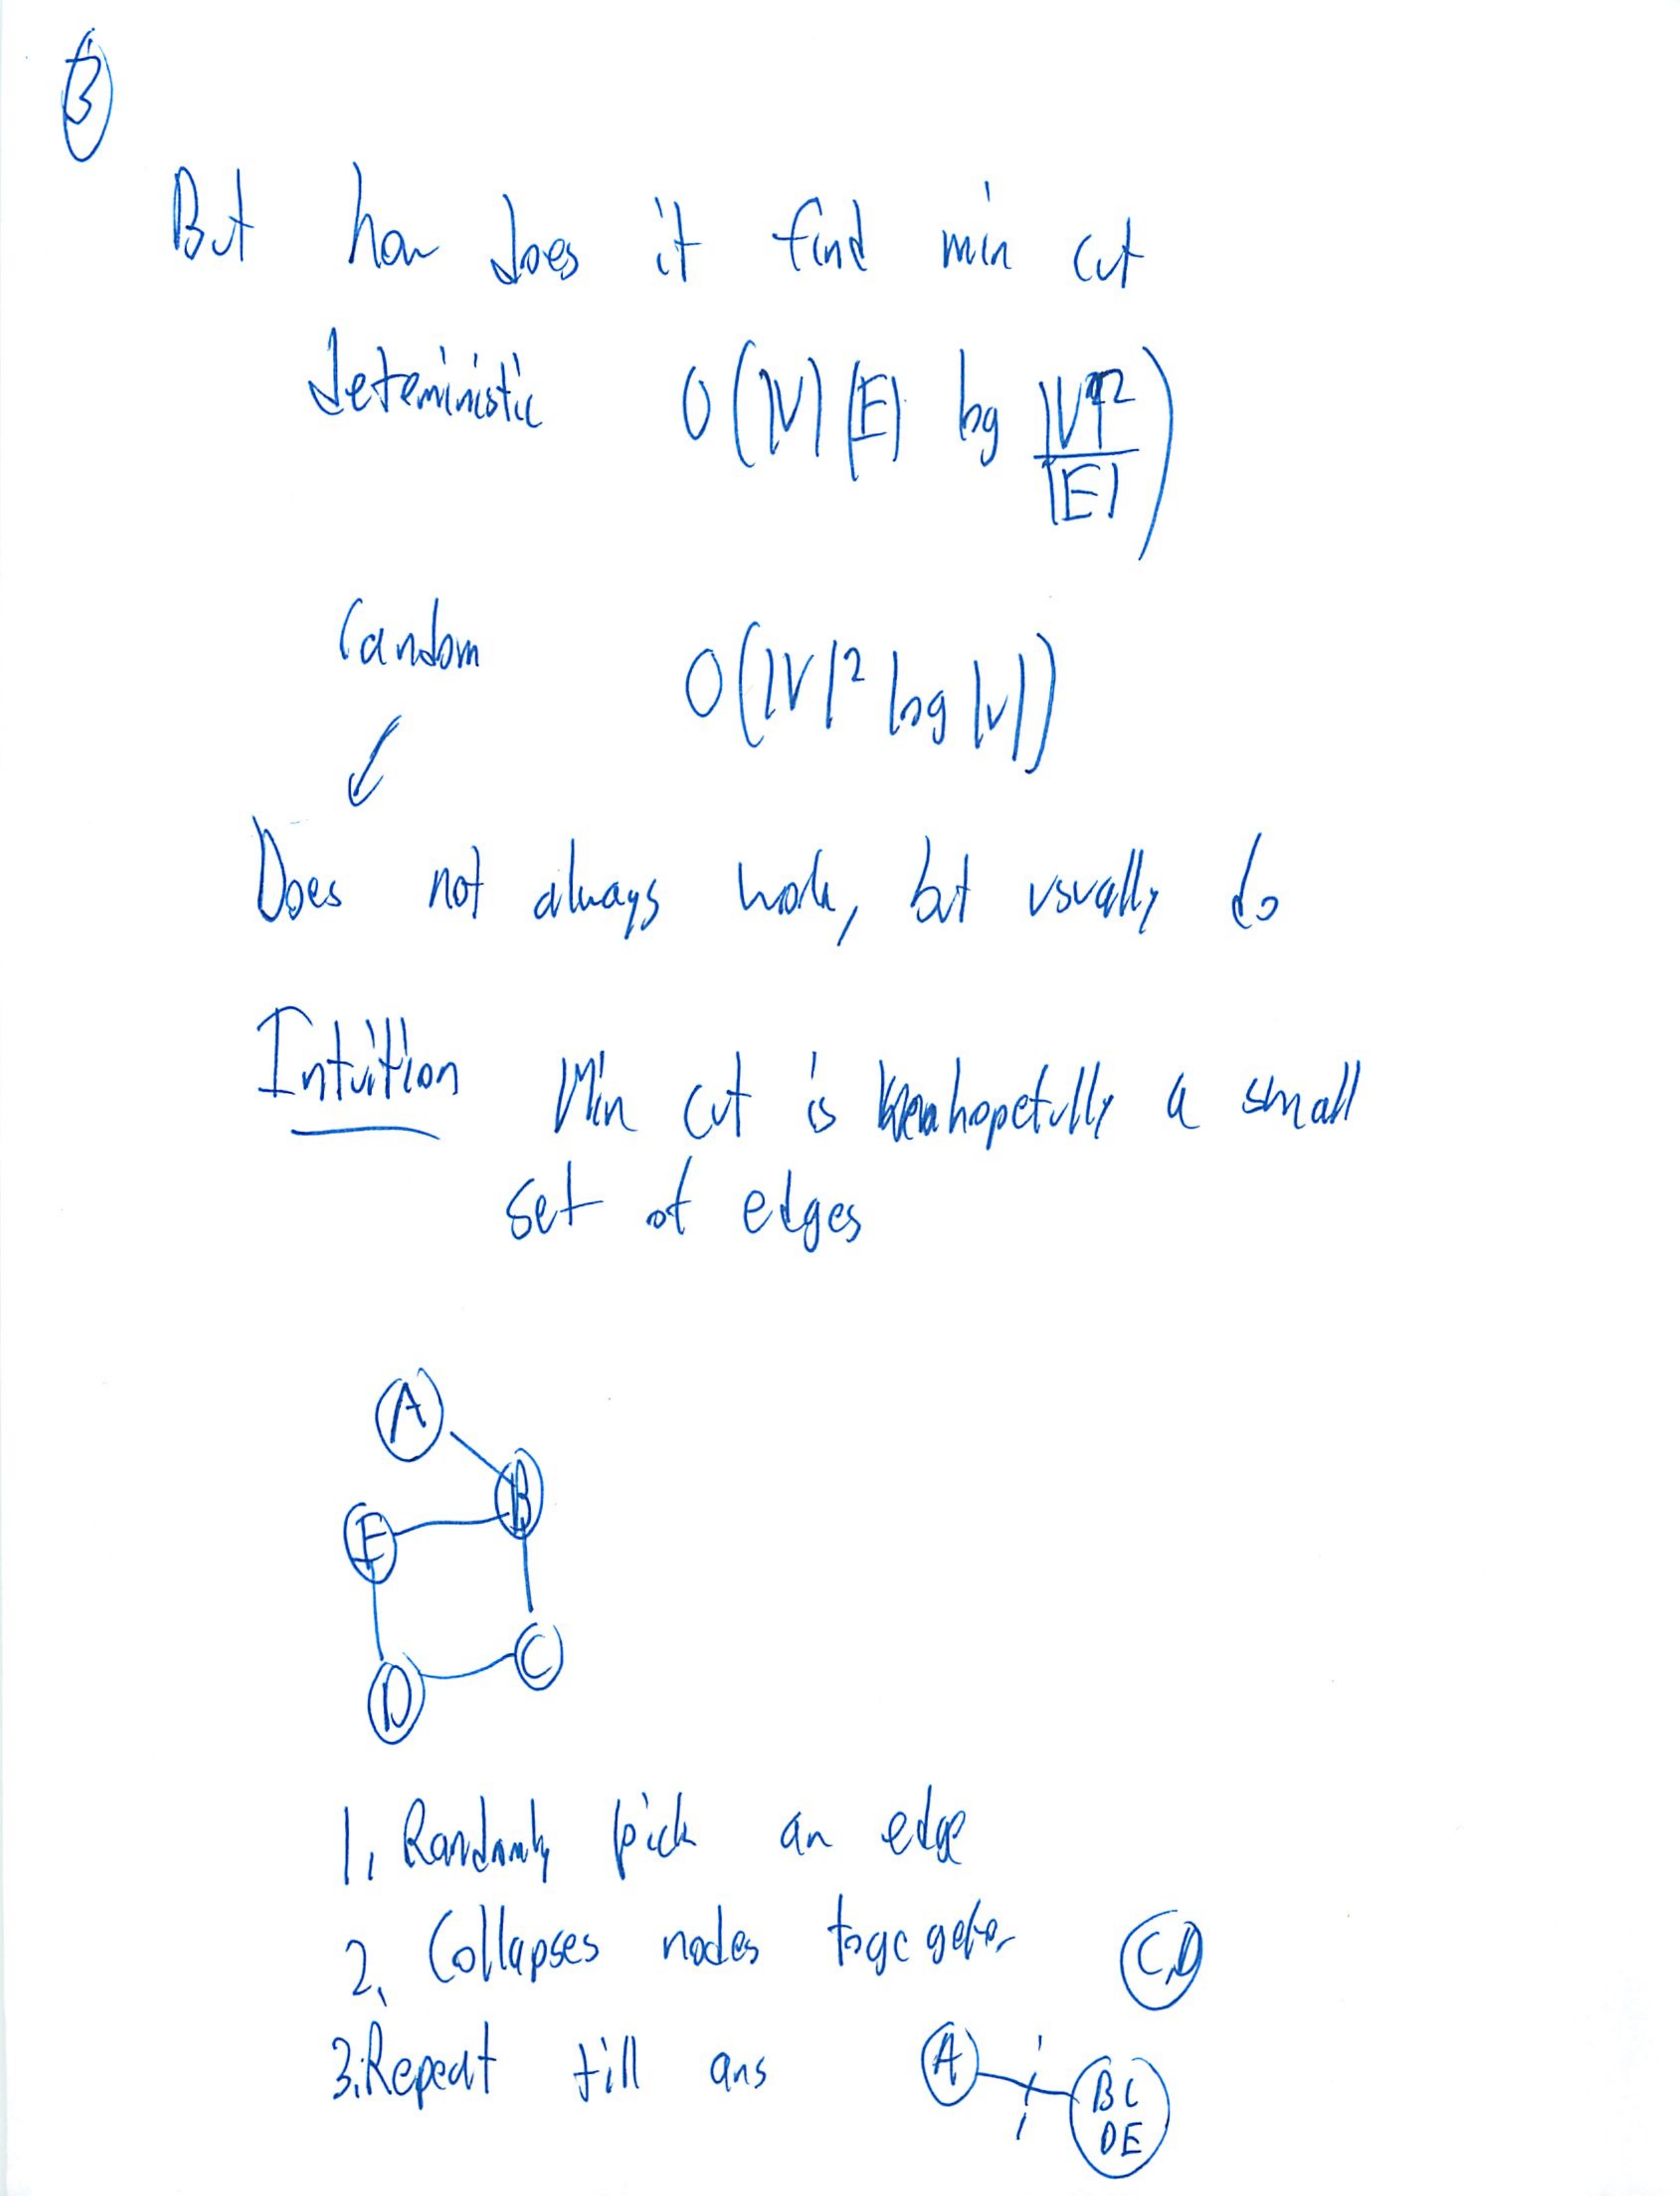 But how does it find min cut
deteministic O(|V| |E| log |V|²/|E|)
random O(|V|² log |V|)
Does not always work, but usually do
Intuition Min cut is hopefully a small
set of edges
A
B
E
C
D
1. Randomly pick an edge
2. Collapses nodes C,D
3. Repeat till ans A BC
DE